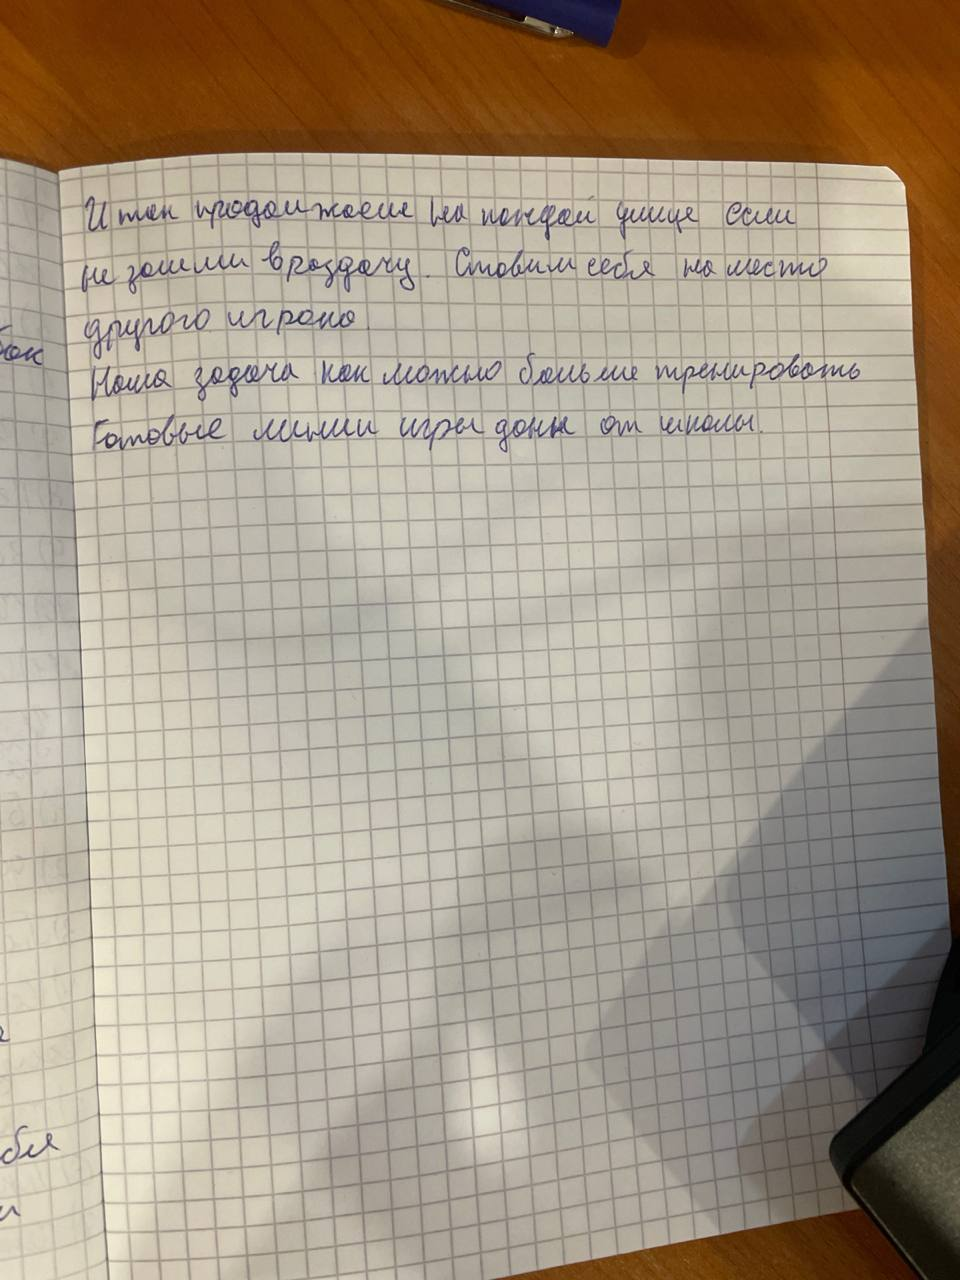 И так продолжаем на каждой улице если
не зашли в раздачу. Ставим себя на место
другого игрока.
Наша задача как можно больше тренировать
Готовые линии игры от школы.